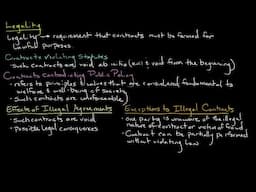 Legality
Legality → requirement that contracts must be formed for
lawful purposes.
Contracts Violating Statutes
• Such contracts are void ab initio (null & void from the beginning)
Contracts Contradicting Public Policy
• refers to principles & values that are considered fundamental to
welfare & well-being of society
• Such contracts are unenforceable
Effects of Illegal Agreements
• Such contracts are void
• possible legal consequences
Exceptions to Illegal Contracts
• One party is unaware of the illegal
nature of contract or victim of fraud
• Contract can be partially performed
without violating law